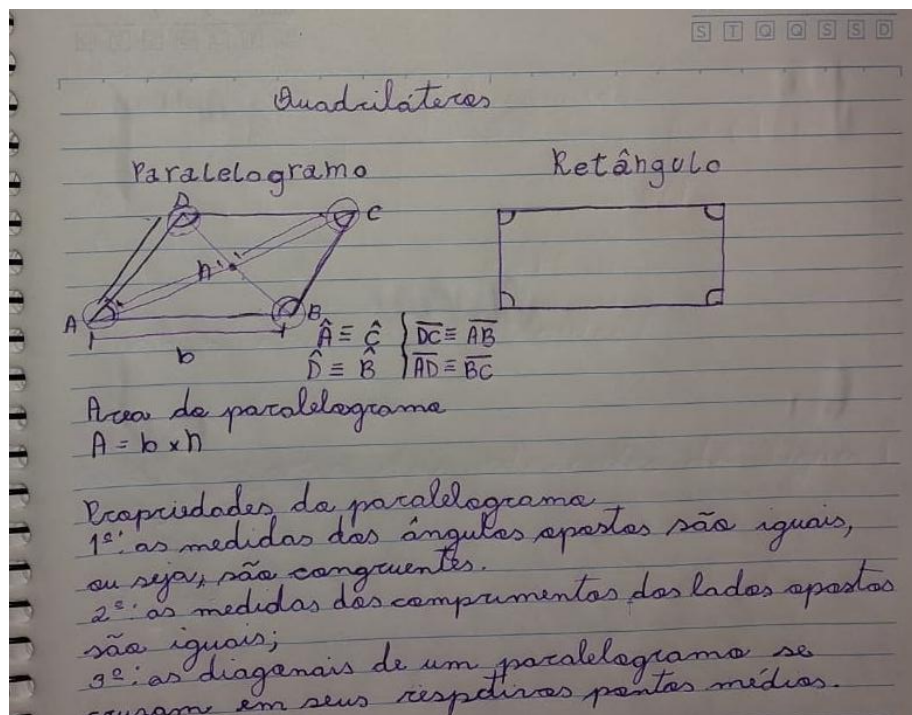 S T Q Q S S D
Quadriláteros
Paralelogramo
Retângulo
D
C
h
A
B
b
Â ≡ Ĉ
D̂ ≡ B̂
DC ≡ AB
AD ≡ BC
Área do paralelogramo
A = b x h
Propriedades do paralelogramo
1º: as medidas dos ângulos opostos são iguais,
ou seja, são congruentes.
2º: as medidas dos comprimentos dos lados opostos
são iguais;
3º: as diagonais de um paralelogramo se
cruzam em seus respetivos pontos médios.